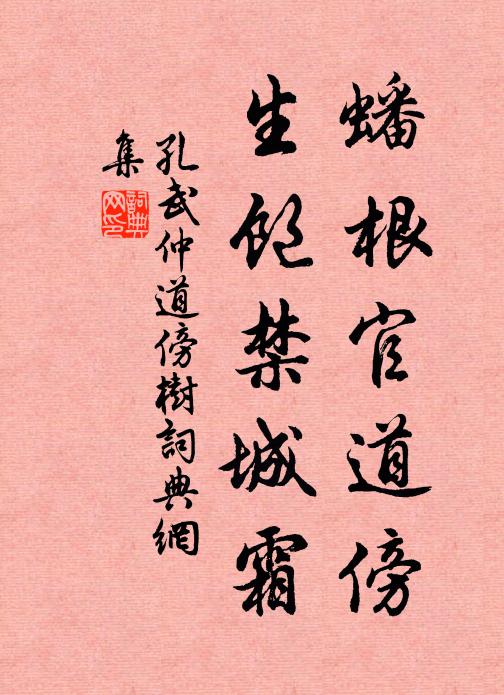 蟠根官道傍
生飽禁城霜
孔武仲道傍樹詞典網
集
詞典网印